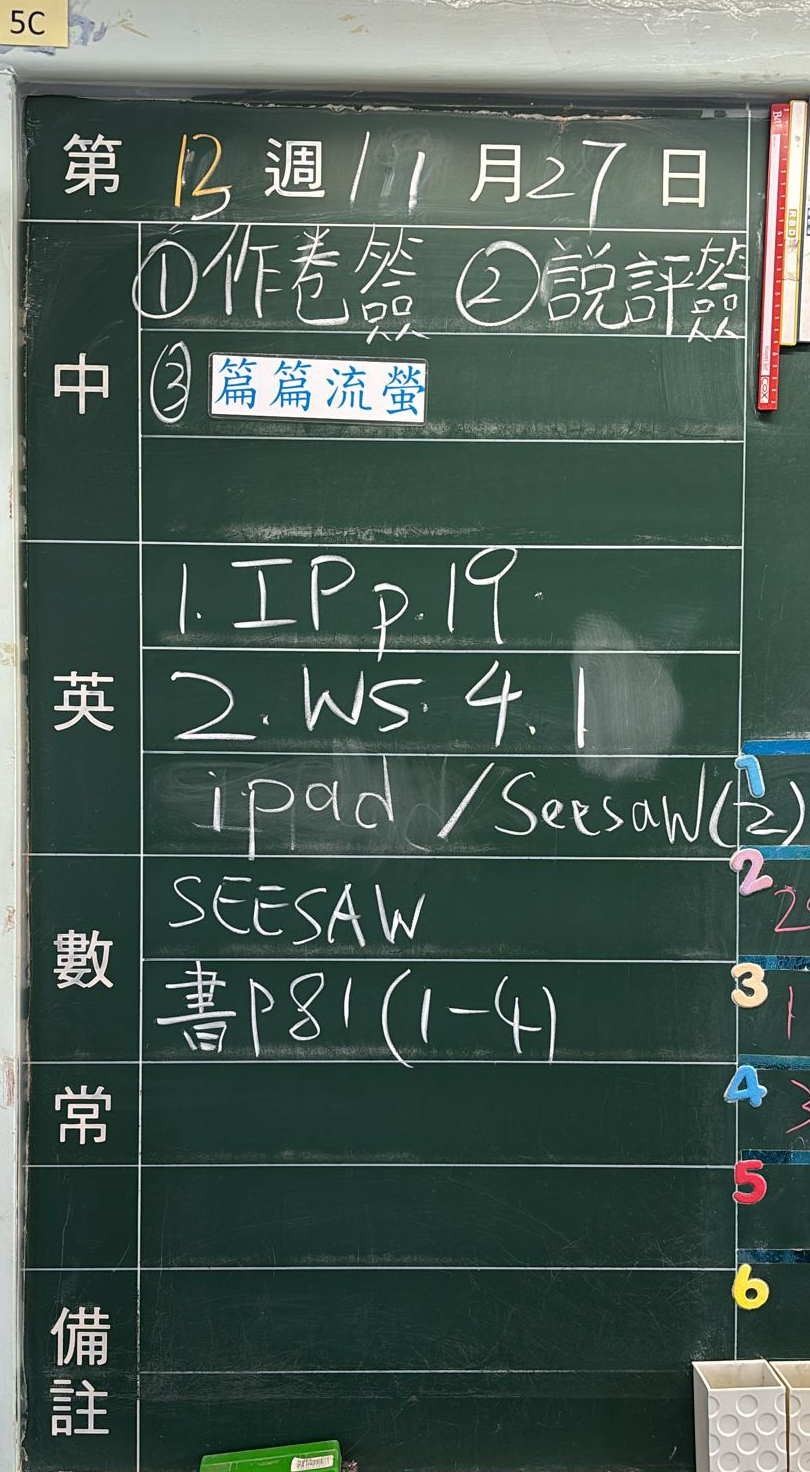 5C
第 13 週 11 月 27 日
中
①作卷簽 ②説評簽
③ 篇篇流螢
英
1. IP p.19
2. WS. 4.1
ipad / Seesaw(2)
數
SEESAW
書P81(1-4)
常
備註
1
2
3
4
5
6